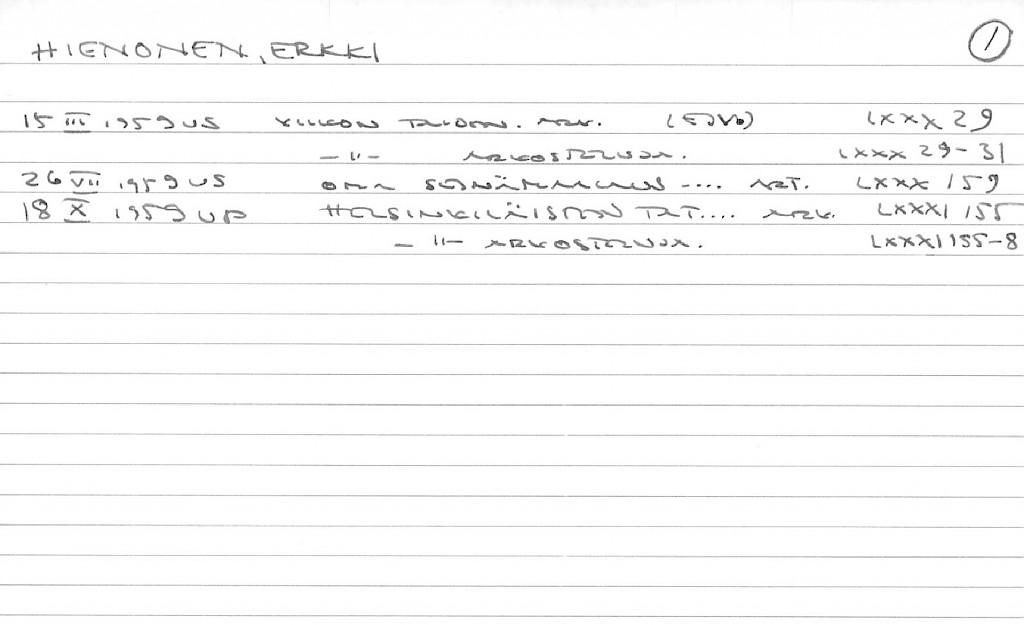 HIENONEN, ERKKI
1
15 III 1959 US VIIKON TAIDEN. ARK. LXXX 29
–"– ARVOSTELUJA. LXXX 29-31
26 VII 1959 US OMA .... ART. LXXX 159
18 X 1959 HELSINKILÄISTEN TAIT.... ARK. LXXXI 155
–"– ARVOSTELUJA. LXXXI 155-8